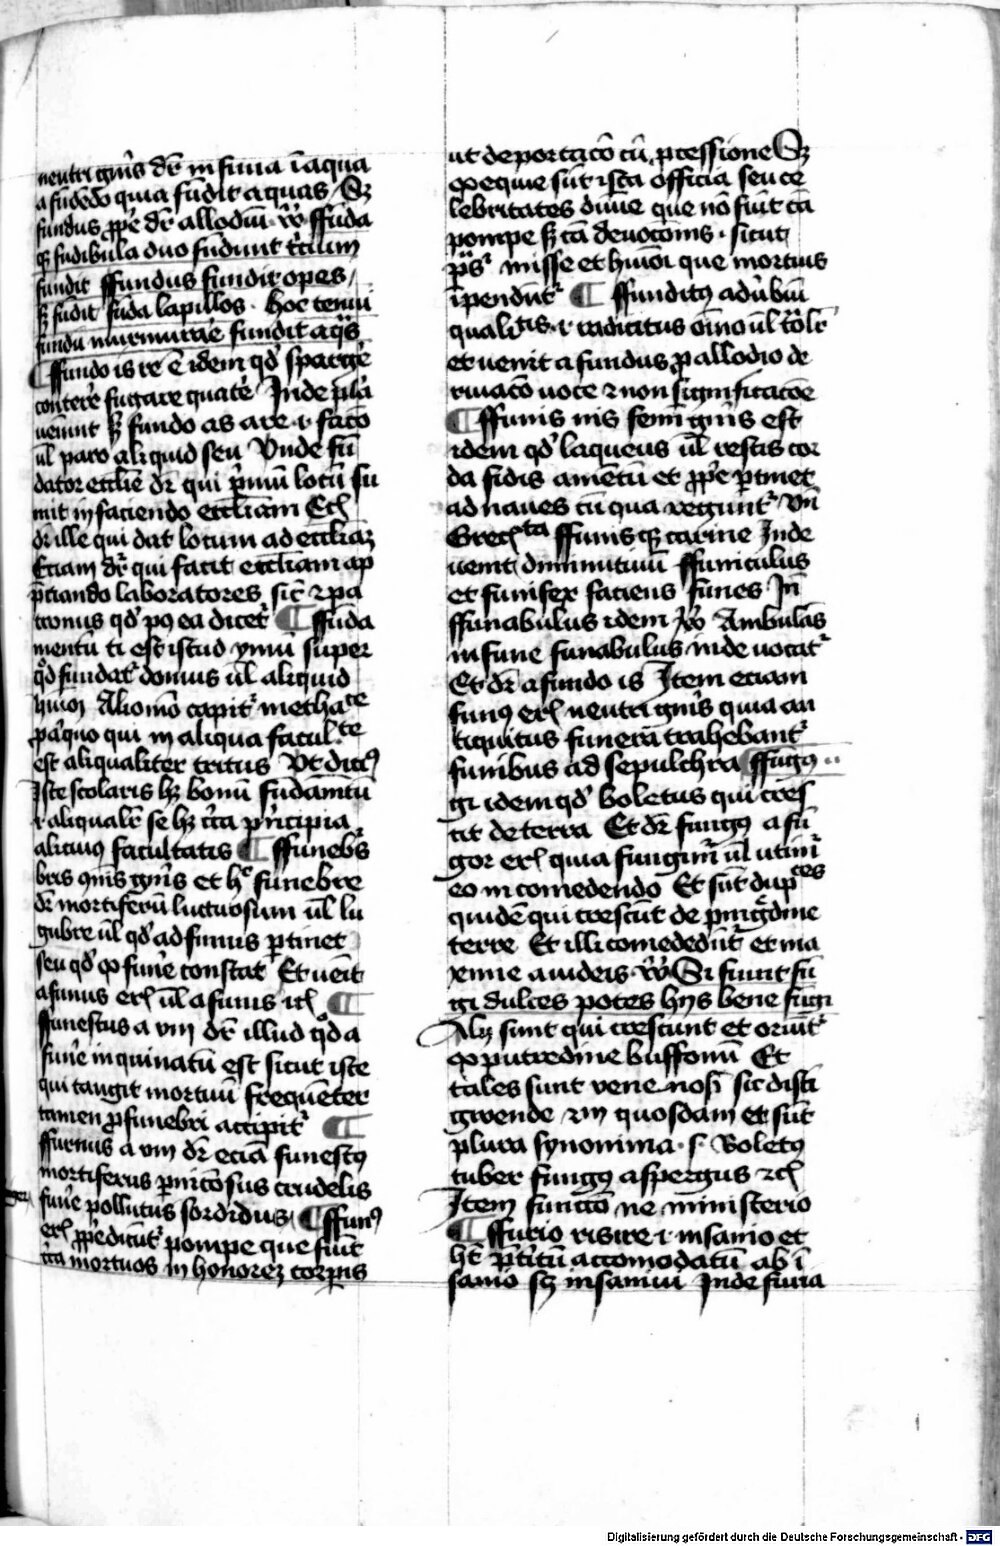 neutri gn̄is dr̄ in fima i aqua
a fūdēdo quia fūdit aquas Sz
fūndus ꝓp̄e dr̄ allodiū vꝰ ffūda
qz fūdibula duo fūdunt tciūm
fundit ffundus fundit opes
sz fūdit fūda lapillos hoc tenui
funda murmurāe fundit aqȝ
ffundo is re ē idem qd' spargē
conter'e fugare quat'e Inde pl'a
veniunt sz fundo as are i facō
ul paro aliquid seu Unde fū
dator ecclīe dr̄ qui p'mū locū su
mit in faciendo eccliam Ecl
dr̄ ille qui dat locum ad ecclīaz
Eciam dr̄ qui facit eccliam ap
p̄ciando laboratores sic̄ ⁊ pa
tronus qd' pꝰ ea dicetr ¶ ffūda
mentū ti est istud ymū super
qd̄ fundatr domus ul aliquid
hmōi Aliomō capitr metha ce
pa'quo qui in aliqua facul te
est aliqualiter tritus Vt dicꝰ
Iste scolaris hz bonū fūdamtū
i aliqualr se hz c'ca p'ncipia
alicuiꝰ facultatis ¶ ffunebꝰs
bris qn̄is gn̄is et hc funebre
dr̄ mortiferū luctuosum ul lu
gubre ul qd' ad funus p̄tinet
seu qd' ꝓ fune constat Et uēit
a funus erl ul a funis icl ¶
ffunestus a vm dr̄ illud qd̄ a
fune inquinatū est sicut iste
qui tangit mortuū frequēter
tamen ꝓ funebri accipitr ¶
ffurnus a vm dr̄ eciā funestꝰ
mortiferus p̄nicōsus crudelis
fūne pollutus sordidus ¶ ffunꝰ
erl ꝓp̄e dicūtr pompe que fiūt
cca mortuos in honorez corp̄ris
ut deportacō cū ꝓcessione Sz
exequie sūt ista officia seu ce
lebritates diuīe que nō fiūt cā
pompe sz cā deuocōnis sicut
p̄s misse et hmōi que mortuis
īpendūtr ¶ ffunditꝰ adūbiū
qualitis i radicitus oīno ul tōlr
et uenit a fundus ꝓ allodio de
riuacō uoce ⁊ non significacōe
¶ ffunis nis femī gn̄is est
idem qd' laqueus ul restis cor
da fidis amētū et ꝓp̄e p̄tinet
ad naues cū qua reguntr vn̄
Grecista ffunisqz carine Inde
uenit diminutiuū ffuniculus
et funifex faciens funes In̄
ffunabulus idem vꝰ Ambulās
in fune funabulus inde uocatr
Et dr̄ a fundo is Item eciam
funꝰ erl neutri gn̄is quia an
tiquitus funera trahebantr
funibus ad sepulchra ffūgꝰ
gi idem qd' boletus qui cres
cit de terra Et dr̄ fungꝰ a fū
gor erl quia fungimr ul utimr
eo in comedendo Et sūt dupces
quidē qui crescūt de pinguedine
terre Et illi comedēdūtr et ma
xime a iudeis vꝰ Si fiunt fū
gi dulces potes hijs bene fūgi
Alij sunt qui crescunt et oriūtr
ex putredine buffonū Et
tales sunt venenosi sic disti
gwende ⁊ in quosdam et sūt
plura synonima s boletꝰ
tuber fungꝰ aspergus ⁊cl
Item funccō ne ministerio
¶ ffurio risire i insanio et
ht p̄titū accomodatū ab ī
sanio scz insaniui Inde furia